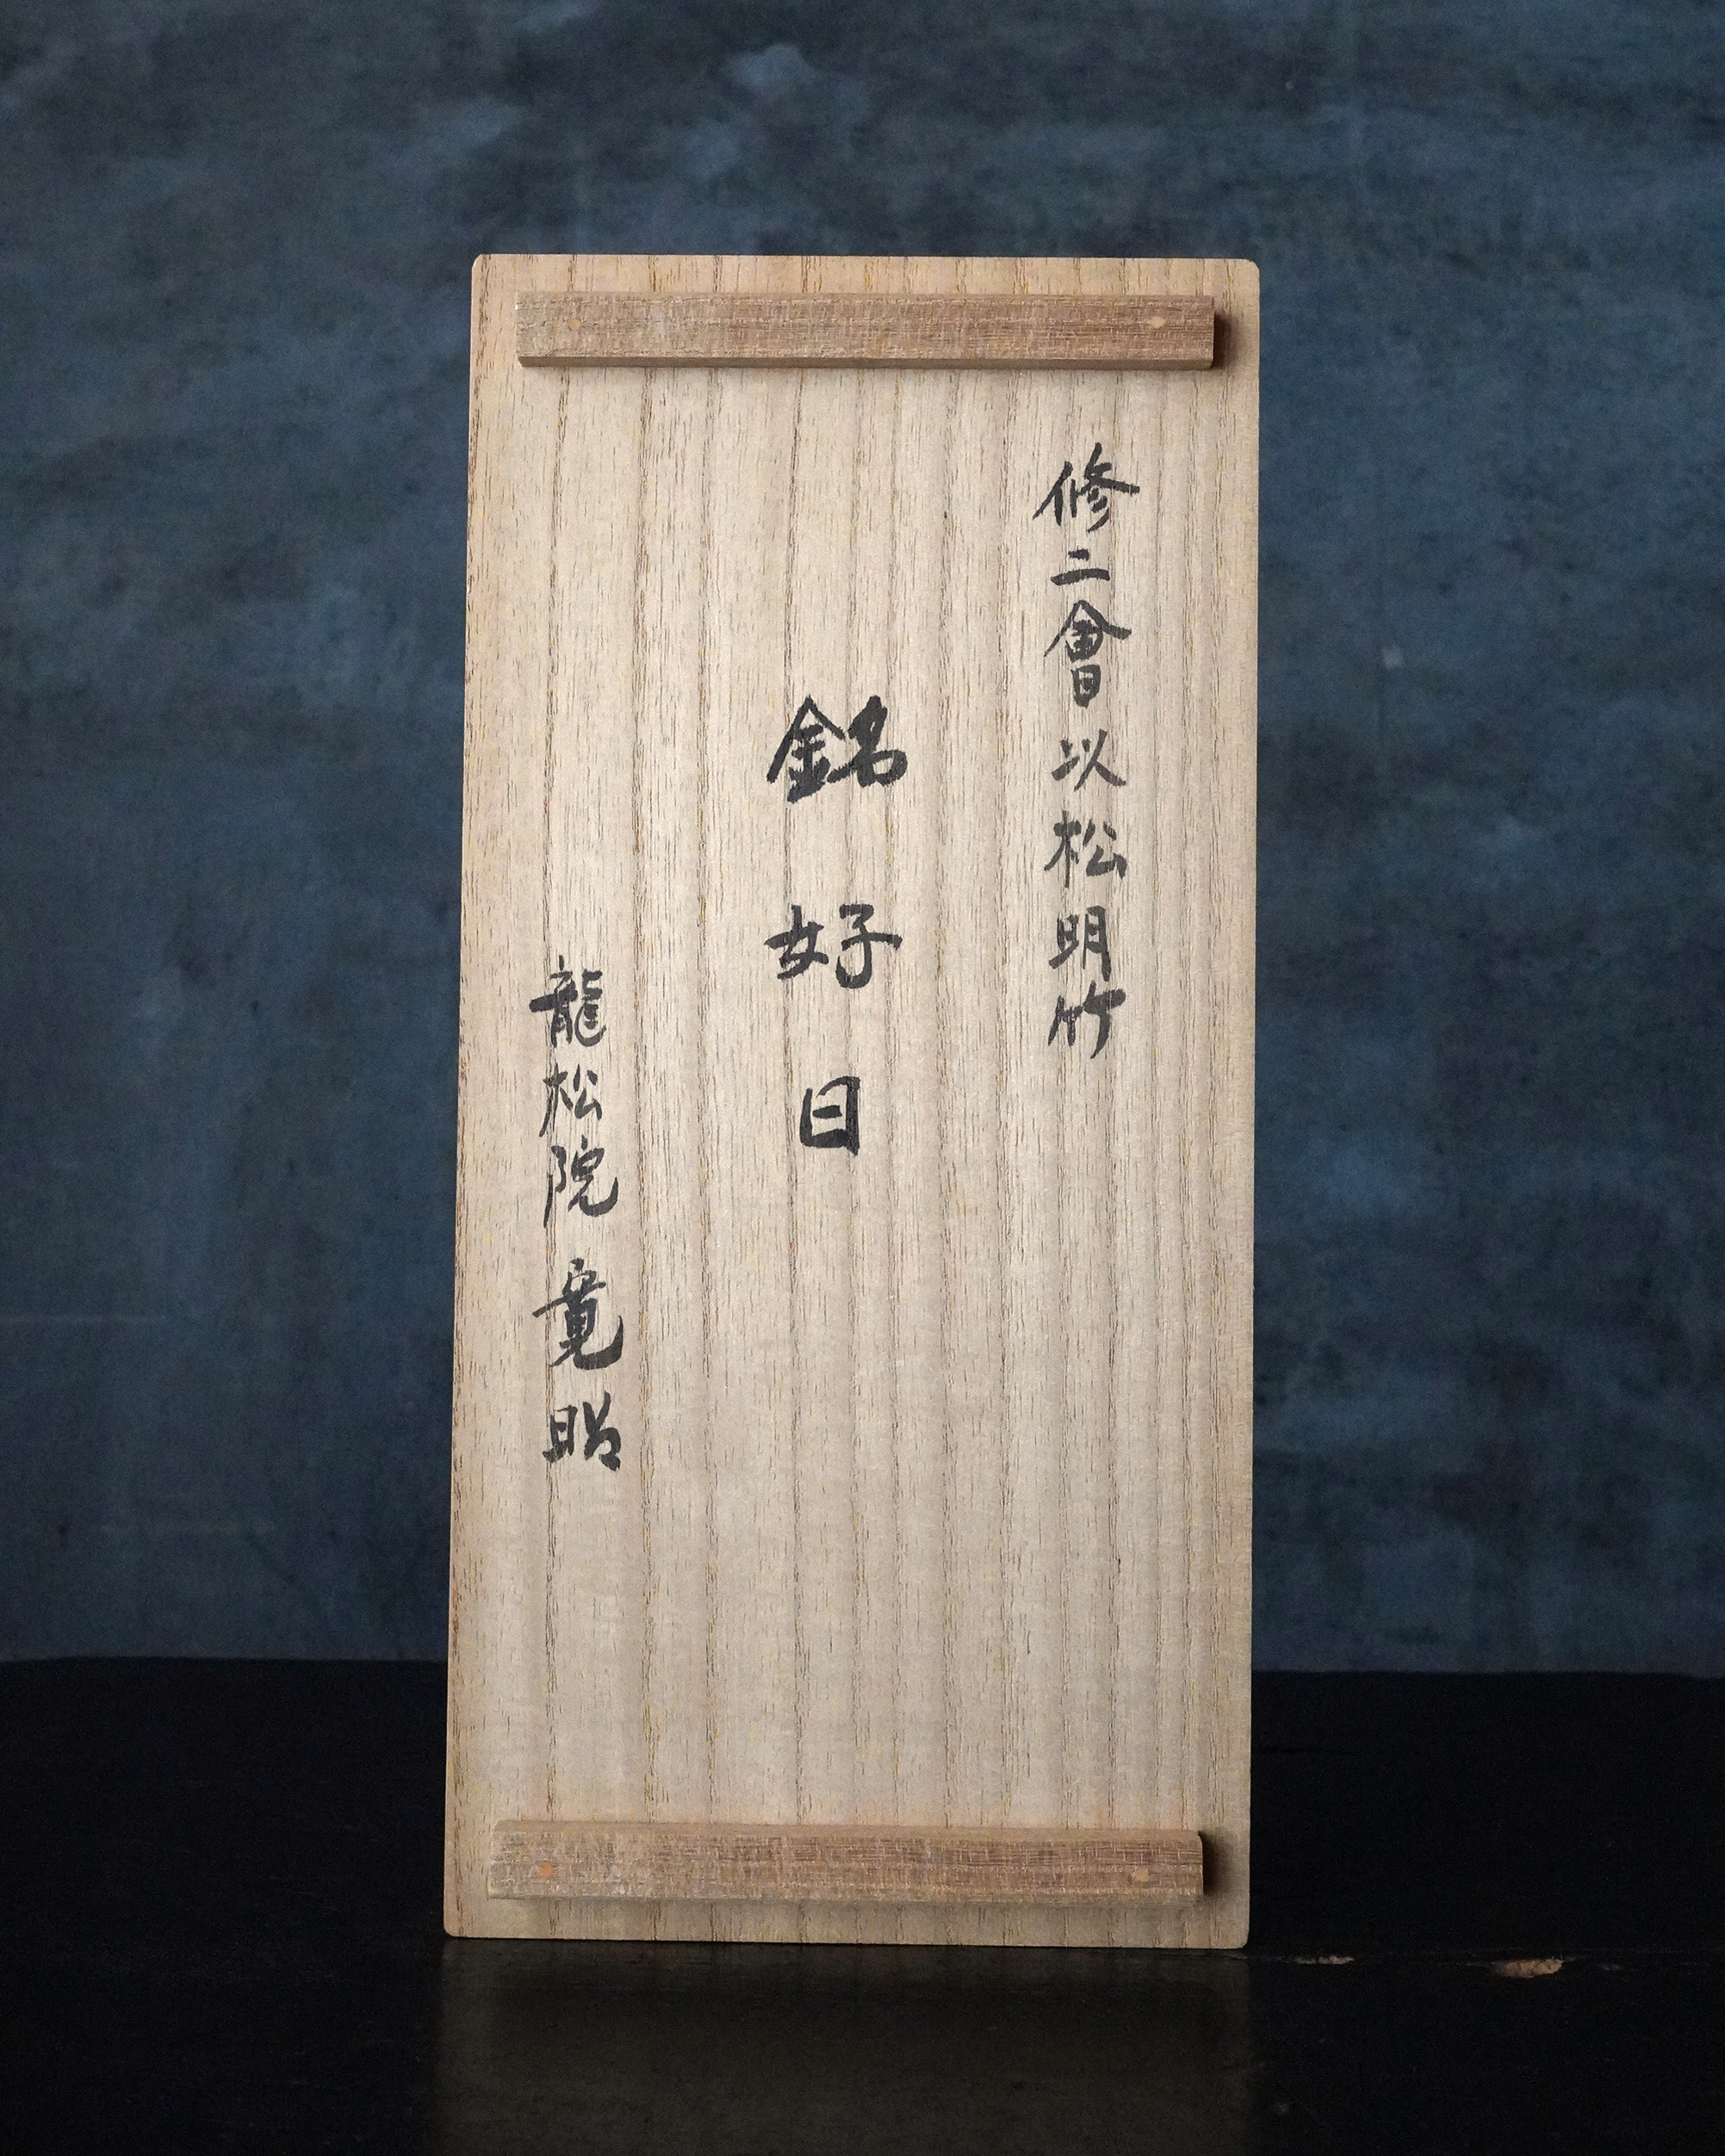 修二會以松明竹
銘好日
龍松院寛昭